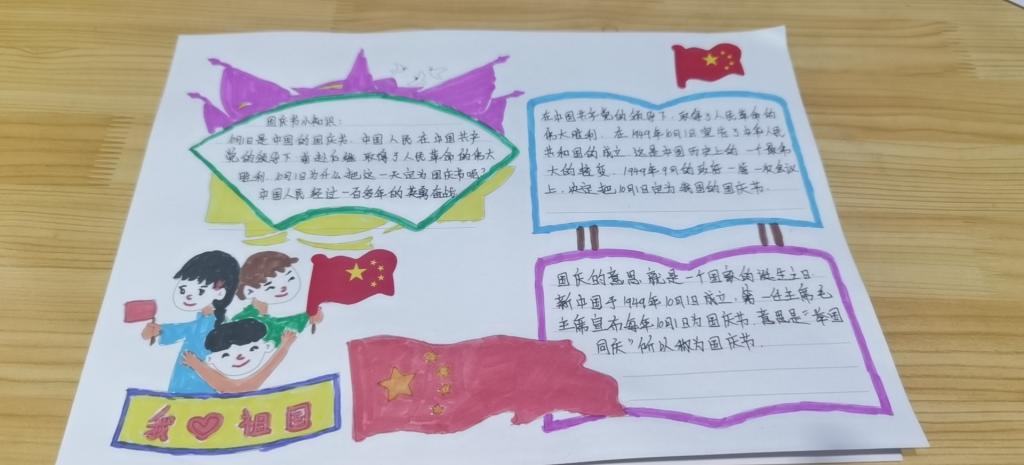 国庆节小知识：
10月1日是中国的国庆节，中国人民在中国共产
党的领导下，前赴后继，取得了人民革命的伟大
胜利，10月1日为什么把这一天定为国庆节呢？
中国人民经过一百多年的英勇奋战
在中国共产党的领导下，取得了人民革命的
伟大胜利。在1949年10月1日宣告了中华人民
共和国的成立，这是中国历史上的一个最伟
大的转变。1949年9月的政府一届一次会议
上，决定把10月1日定为我国的国庆节
国庆的意思就是一个国家的诞生之日
新中国于1949年10月1日成立，第一任主席毛
主席宣布每年10月1日为国庆节，意思是“举国
同庆”所以称为国庆节．
我 祖国